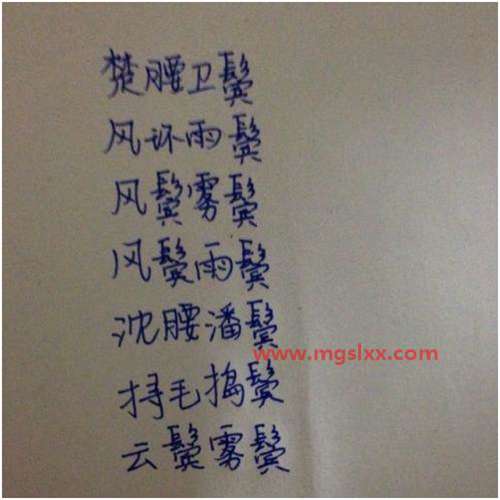 楚腰卫鬓
风环雨鬓
风鬓雾鬓
风鬓雨鬓
沈腰潘鬓
www.mgslxx.com
挦毛捣鬓
云鬓雾鬓